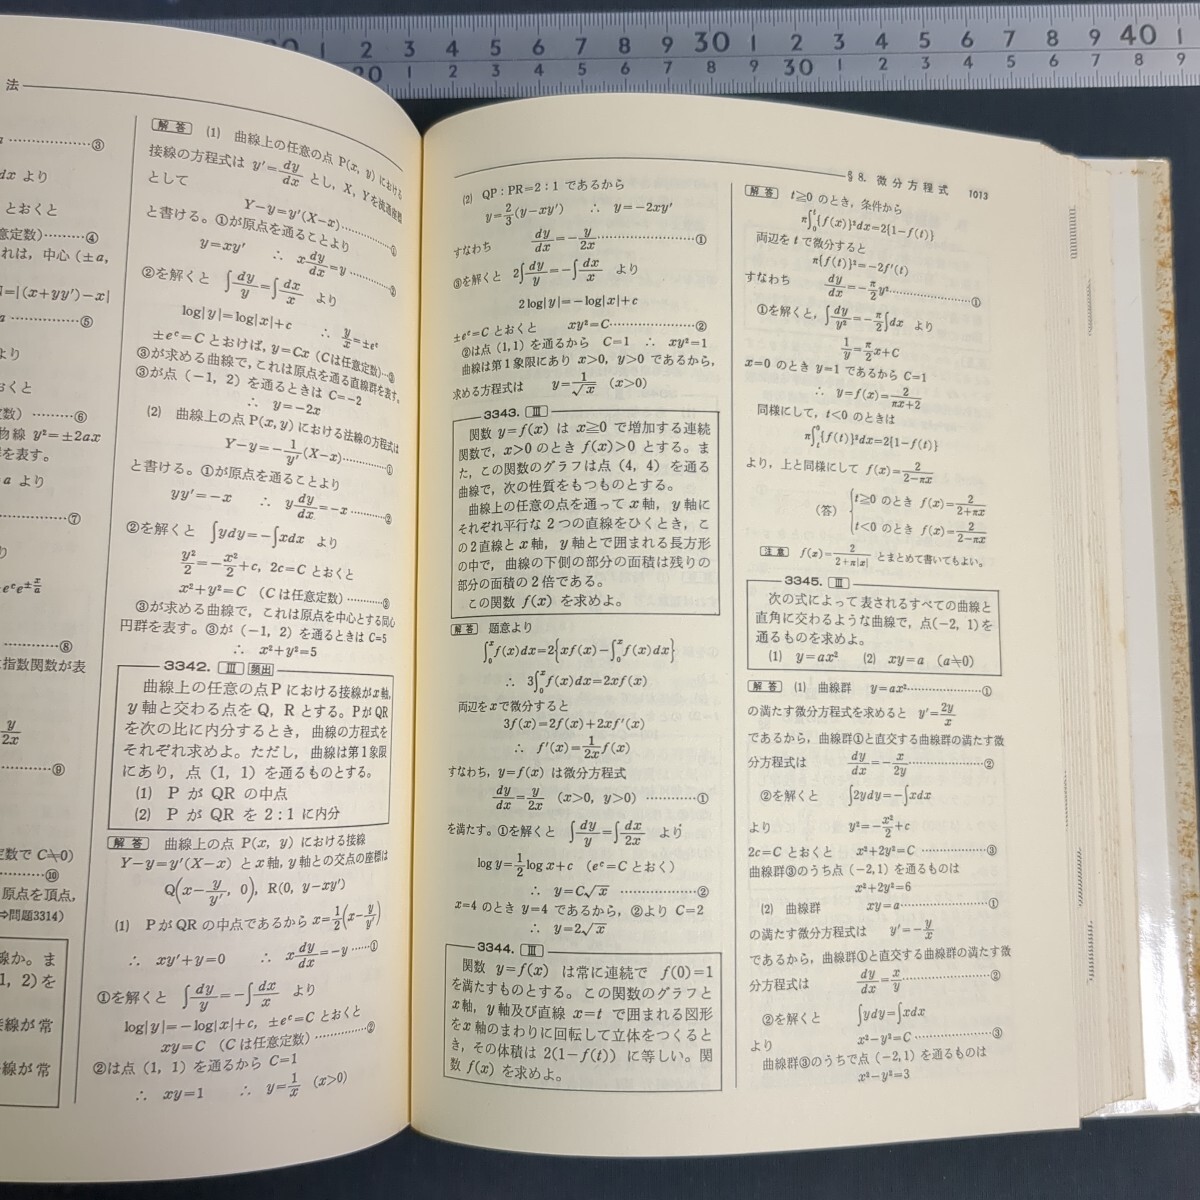 1 2 3 4 5 6 7 8 9 30 1 2 3 4 5 6 7 8 9 40 1
20 1 2 3 4 5 6 7 8 9 30 1 2 3 4 5 6 7 8 9
法
③
dx より
とおくと
意定数)………④
れは，中心 (±a,
=|(x+yy′)−x|
⑤
より
おくと
定数) ………⑥
物線 y²=±2ax
を表す。
a より
⑦
⑧
指数関数が表
y/2x
⑨
定数で C≠0)
⑩
原点を頂点，
(⇒問題3314)
線か。ま
1, 2) を
接線が常
線が常
解答 (1) 曲線上の任意の点 P(x, y) における
接線の方程式は y′=dy/dx とし，X, Y を流通座標
として
Y−y=y′(X−x)…………①
と書ける。①が原点を通ることより
y=xy′ ∴ x dy/dx=y…………②
②を解くと ∫dy/y=∫dx/x より
log|y|=log|x|+c ∴ y/x=±e^c
±e^c=C とおけば，y=Cx (Cは任意定数)…③
③が求める曲線で，これは原点を通る直線群を表す。
③が点 (−1, 2) を通るときは C=−2
∴ y=−2x
(2) 曲線上の点 P(x, y) における法線の方程式は
Y−y=−1/y′(X−x)…………①
と書ける。①が原点を通ることより
yy′=−x ∴ y dy/dx=−x…………②
②を解くと ∫ydy=−∫xdx より
y²/2=−x²/2+c, 2c=C とおくと
x²+y²=C (Cは任意定数)…………③
③が求める曲線で，これは原点を中心とする同心
円群を表す。③が (−1, 2) を通るときは C=5
∴ x²+y²=5
3342. Ⅲ 頻出
曲線上の任意の点Pにおける接線がx軸,
y軸と交わる点をQ, Rとする。PがQR
を次の比に内分するとき，曲線の方程式を
それぞれ求めよ。ただし，曲線は第1象限
にあり，点 (1, 1) を通るものとする。
(1) P が QR の中点
(2) P が QR を 2:1 に内分
解答 曲線上の点 P(x, y) における接線
Y−y=y′(X−x) とx軸, y軸との交点の座標は
Q(x−y/y′, 0), R(0, y−xy′)
(1) PがQRの中点であるから x=1/2(x−y/y′)
∴ xy′+y=0 ∴ x dy/dx=−y……①
①を解くと ∫dy/y=−∫dx/x より
log|y|=−log|x|+c, ±e^c=C とおくと
xy=C (Cは任意定数)…………②
②は点 (1, 1) を通るから C=1
∴ xy=1 ∴ y=1/x (x>0)
§8. 微分方程式 1013
(2) QP:PR=2:1 であるから
y=2/3(y−xy′) ∴ y=−2xy′
すなわち dy/dx=−y/2x…………①
③を解くと 2∫dy/y=−∫dx/x より
2log|y|=−log|x|+c
±e^c=C とおくと xy²=C…………②
②は点 (1, 1) を通るから C=1 ∴ xy²=1
曲線は第1象限にあり x>0, y>0 であるから，
求める方程式は y=1/√x (x>0)
3343. Ⅲ
関数 y=f(x) は x≧0 で増加する連続
関数で，x>0のとき f(x)>0 とする。ま
た，この関数のグラフは点 (4, 4) を通る
曲線で，次の性質をもつものとする。
曲線上の任意の点を通って x 軸，y 軸に
それぞれ平行な2つの直線をひくとき，こ
の2直線と x 軸，y 軸とで囲まれる長方形
の中で，曲線の下側の部分の面積は残りの
部分の面積の2倍である。
この関数 f(x) を求めよ。
解答 題意より
∫₀ˣf(x)dx=2{xf(x)−∫₀ˣf(x)dx}
∴ 3∫₀ˣf(x)dx=2xf(x)
両辺をxで微分すると
3f(x)=2f(x)+2xf′(x)
∴ f′(x)=1/2x f(x)
すなわち，y=f(x) は微分方程式
dy/dx=y/2x (x>0, y>0) …………①
を満たす。①を解くと ∫dy/y=∫dx/2x より
log y=1/2 log x+c (e^c=C とおく)
∴ y=C√x …………②
x=4 のとき y=4 であるから，②より C=2
∴ y=2√x
3344. Ⅲ
関数 y=f(x) は常に連続で f(0)=1
を満たすものとする。この関数のグラフと
x軸，y軸及び直線 x=t で囲まれる図形
をx軸のまわりに回転して立体をつくると
き，その体積は 2(1−f(t)) に等しい。関
数 f(x) を求めよ。
解答 t≧0 のとき，条件から
π∫₀ᵗ{f(x)}²dx=2{1−f(t)}
両辺を t で微分すると
π{f(t)}²=−2f′(t)
すなわち dy/dx=−π/2 y²…………①
①を解くと，∫dy/y²=−π/2∫dx より
1/y=π/2 x+C
x=0 のとき y=1 であるから C=1
∴ y=f(x)=2/(πx+2)
同様にして，t<0 のときは
π∫ₜ⁰{f(t)}²dx=2{1−f(t)}
より，上と同様にして f(x)=2/(2−πx)
(答) {t≧0 のとき f(x)=2/(2+πx)
t<0 のとき f(x)=2/(2−πx)
注意 f(x)=2/(2+π|x|) とまとめて書いてもよい。
3345. Ⅲ
次の式によって表されるすべての曲線と
直角に交わるような曲線で，点(−2, 1)を
通るものを求めよ。
(1) y=ax² (2) xy=a (a≠0)
解答 (1) 曲線群 y=ax²…………①
の満たす微分方程式を求めると y′=2y/x
であるから，曲線群①と直交する曲線群の満たす微
分方程式は dy/dx=−x/2y…………②
②を解くと ∫2ydy=−∫xdx
より y²=−x²/2+c
2c=C とおくと x²+2y²=C …………③
曲線群③のうち点 (−2, 1) を通るものは
x²+2y²=6
(2) 曲線群 xy=a…………①
の満たす微分方程式は y′=−y/x
であるから，曲線群①と直交する曲線群の満たす微
分方程式は dy/dx=x/y…………②
②を解くと ∫ydy=∫xdx
より x²−y²=C …………③
曲線群③のうちで点 (−2, 1) を通るものは
x²−y²=3